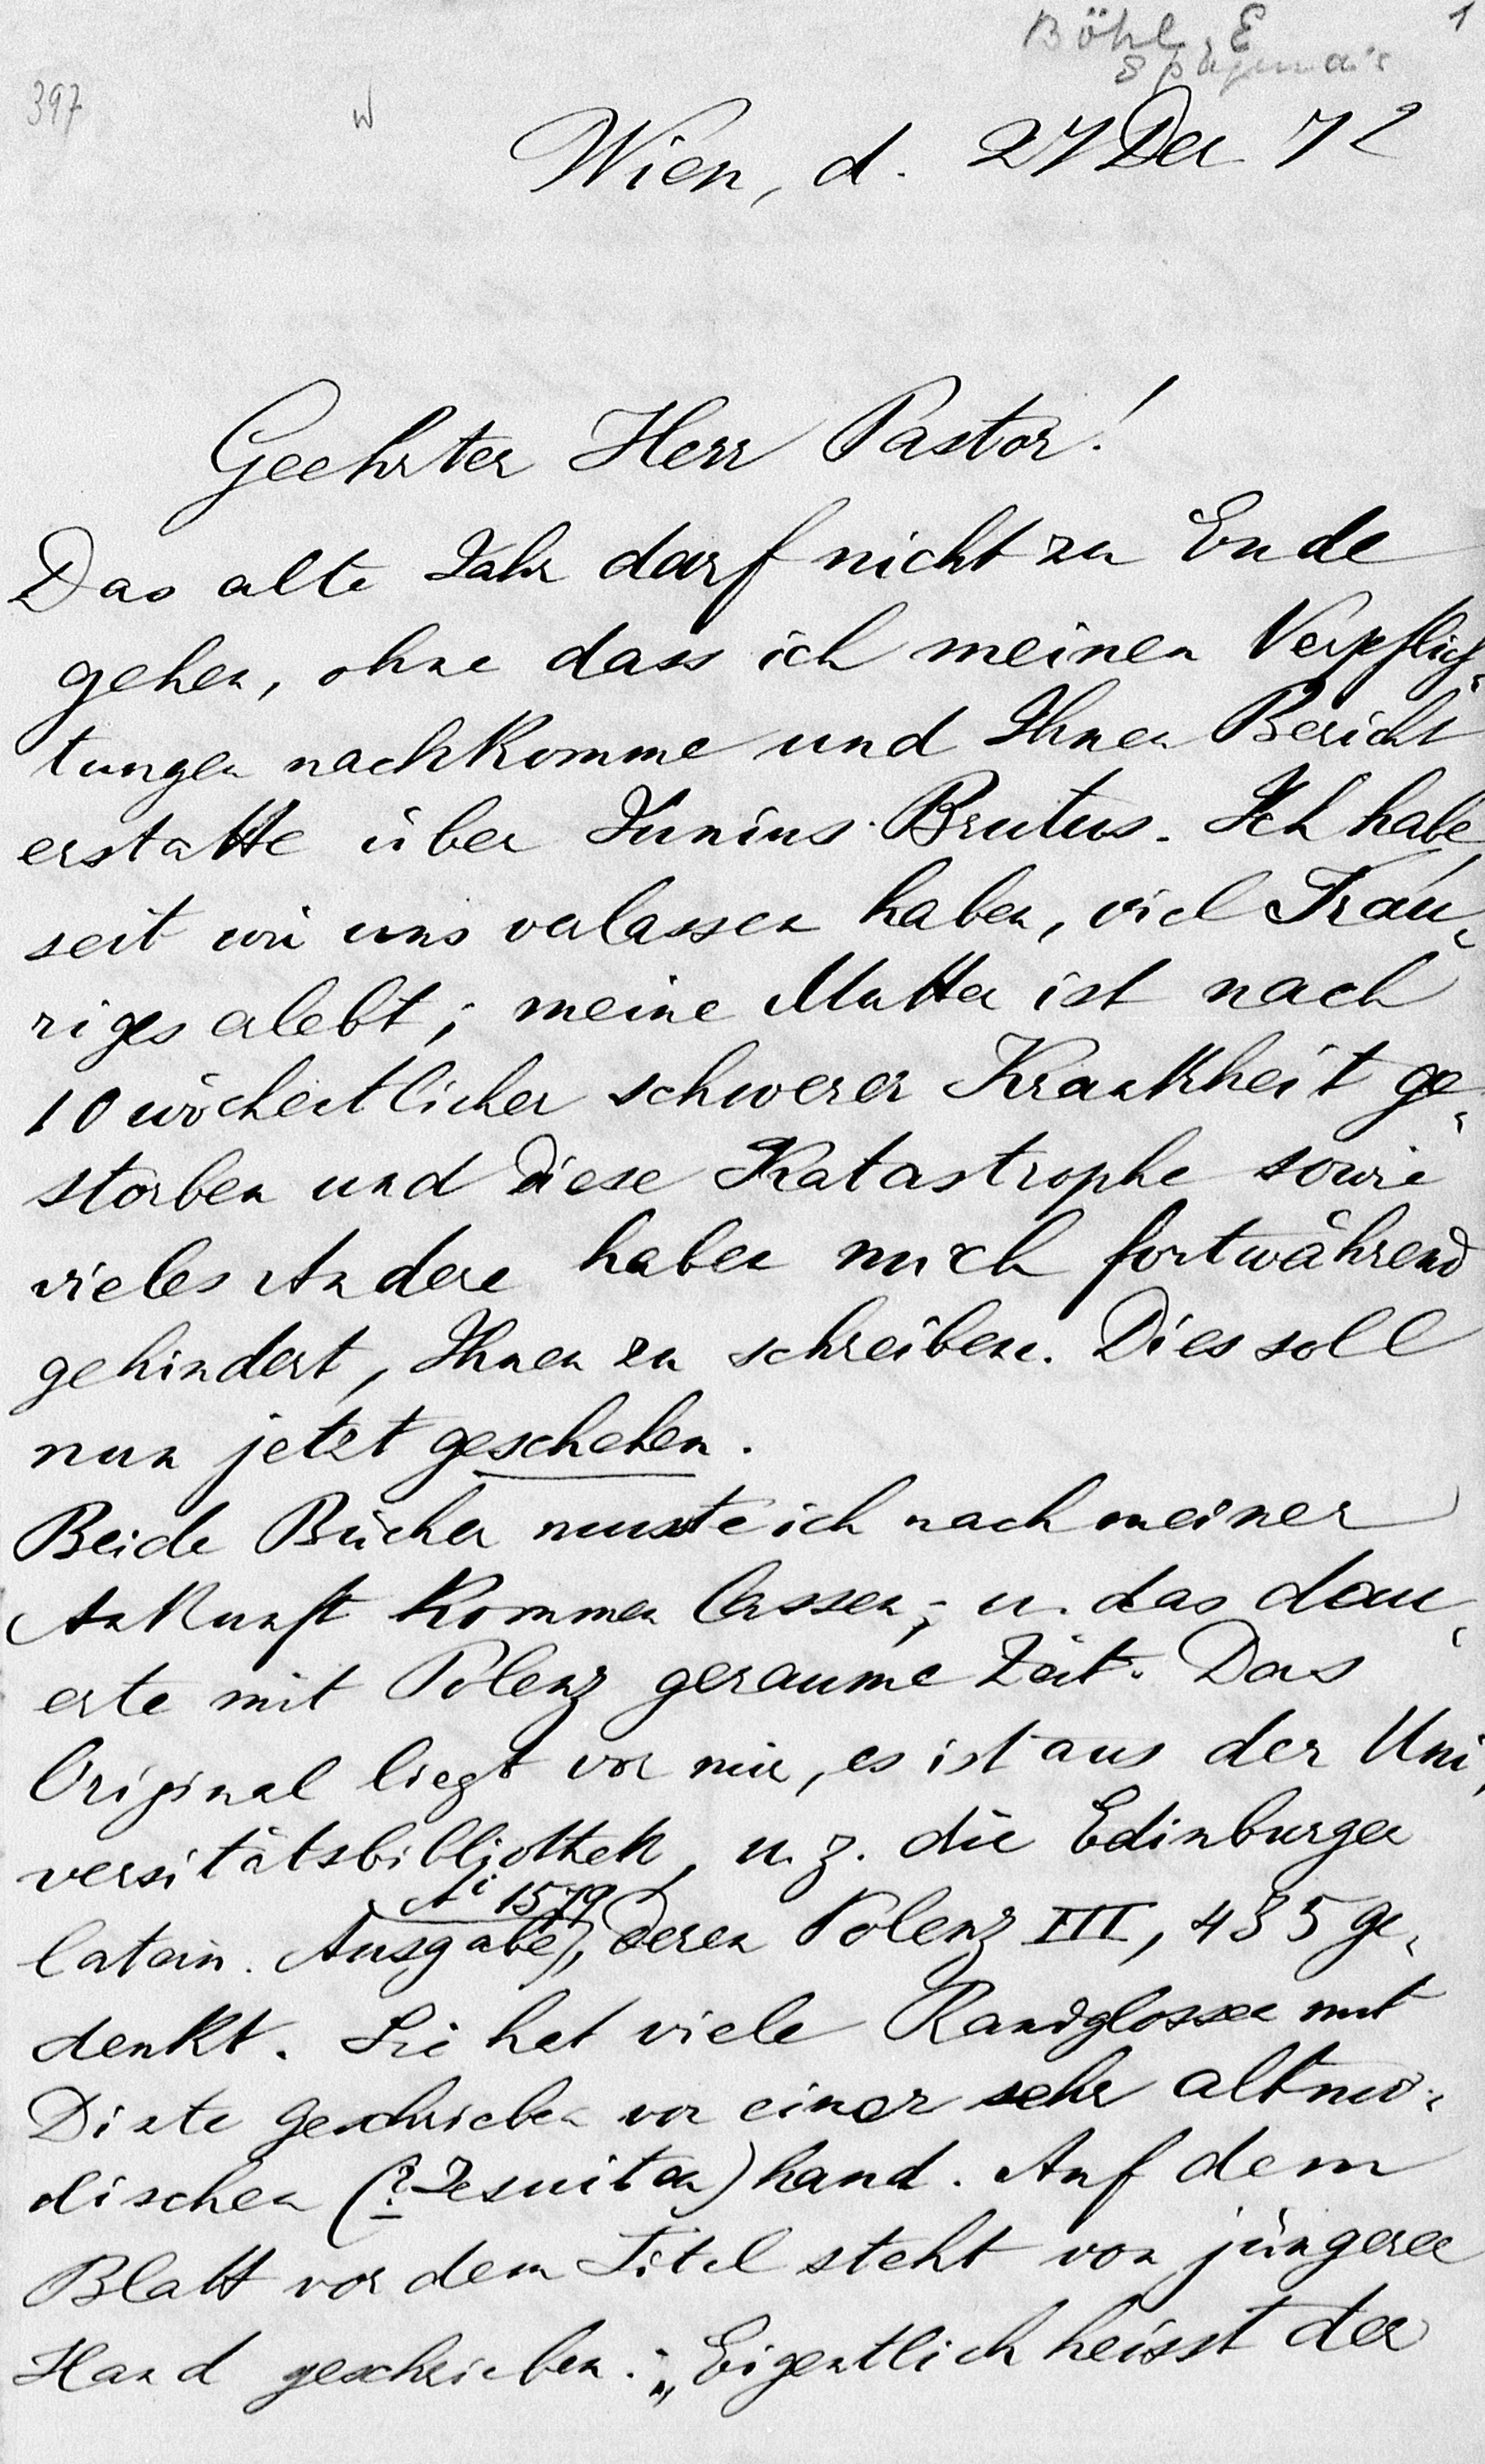 Böhl, E
1
397
W
Wien, d. 27 Dec 72
Geehrter Herr Pastor!
Das alte Jahr darf nicht zu Ende
gehen, ohne dass ich meinen Verpflich-
tungen nachkomme und Ihnen Bericht
erstatte über Junius Brutus. Ich habe,
seit wir uns verlassen haben, viel Trau-
riges erlebt; meine Mutter ist nach
10 wöchentlicher schwerer Krankheit ge-
storben und diese Katastrophe sowie
vieles Andere haben mich fortwährend
gehindert, Ihnen zu schreiben. Dies soll
nun jetzt geschehen.
Beide Bücher musste ich nach meiner
Ankunft kommen lassen, u. das dau-
erte mit Polenz geraume Zeit. Das
Original liegt vor mir, es ist aus der Uni-
versitätsbibliothek, u. z. die Edinburger
1579
latein. Ausgabe, deren Polenz III, 435 ge-
denkt. Sie hat viele Randglossen mit
Dinte geschrieben von einer sehr altmo-
dischen (? Jesuiten) hand. Auf dem
Blatt vor dem Titel steht von jüngerer
Hand geschrieben: „Eigentlich heisst der